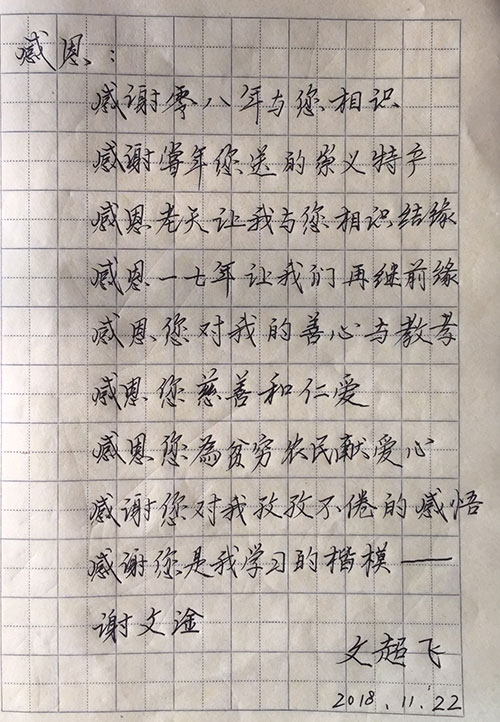 感恩：
感谢零八年与您相识
感谢当年您送的崇义特产
感恩老天让我与您相识结缘
感恩一七年让我们再继前缘
感恩您对我的善心与教孝
感恩您慈善和仁爱
感恩您為贫穷农民献爱心
感谢您对我孜孜不倦的感悟
感谢您是我学习的楷模——
谢文淦
文超飞
2018.11.22